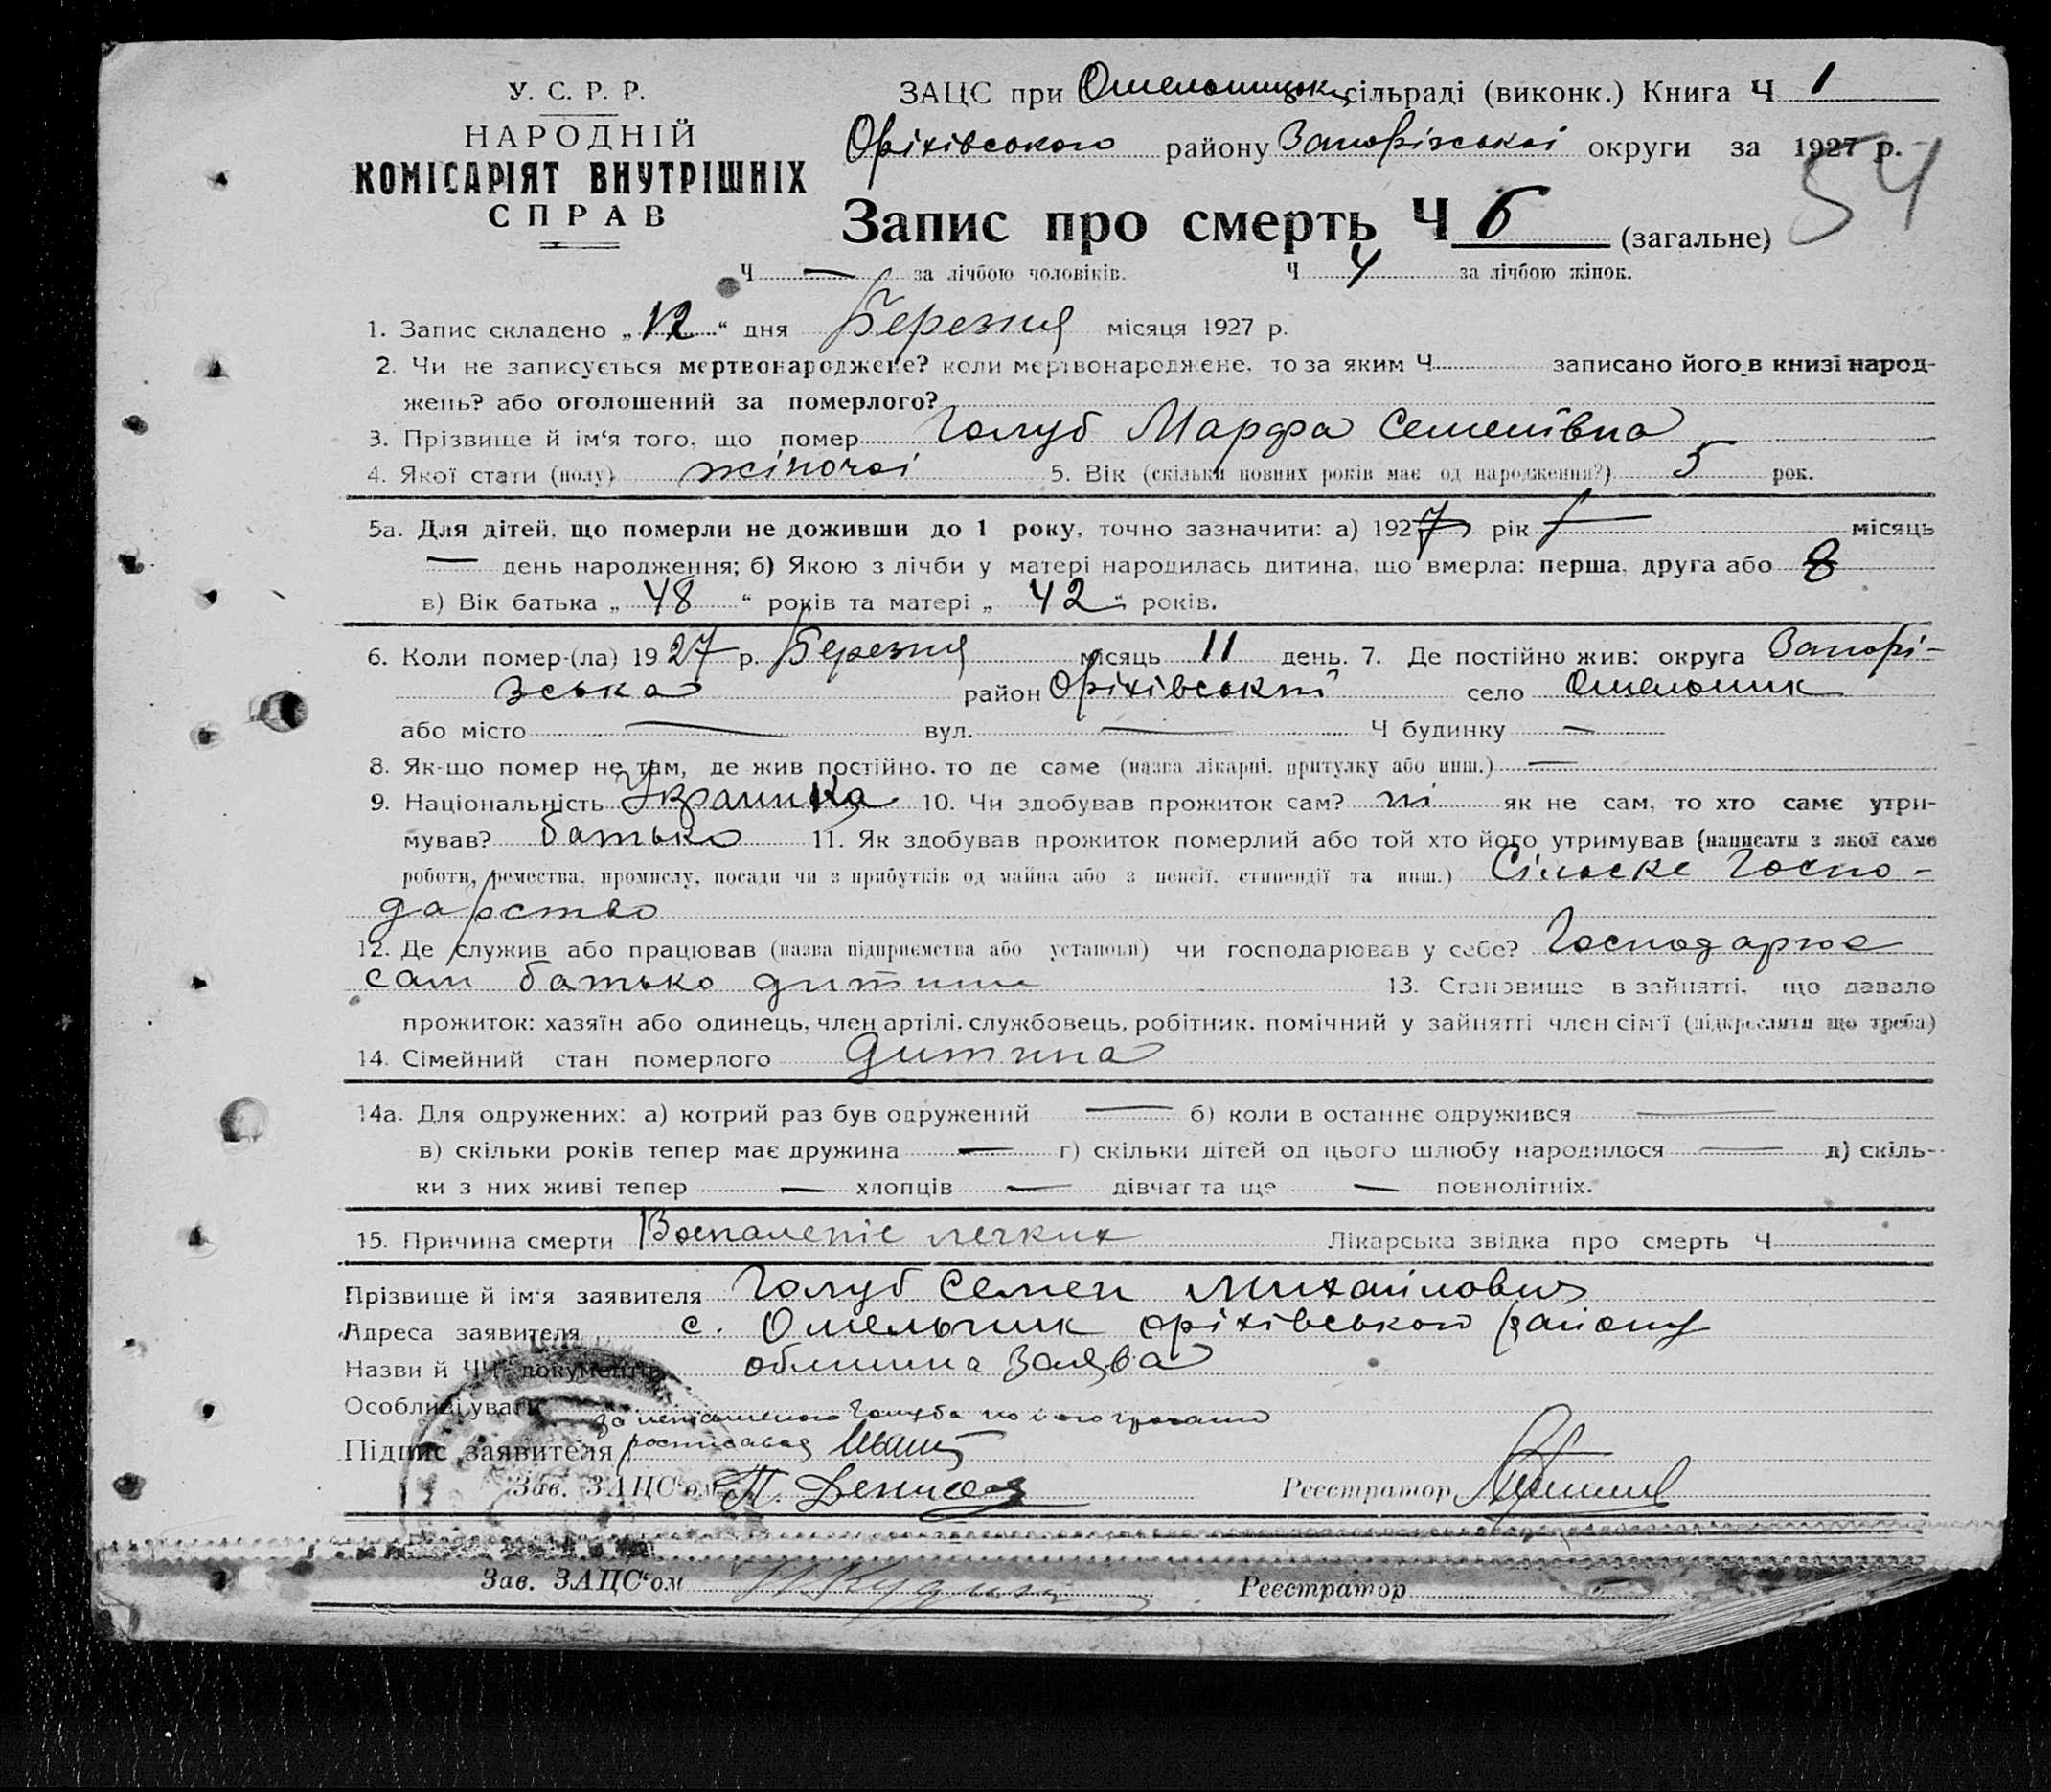 У. С. Р. Р.
НАРОДНІЙ
КОМІСАРІЯТ ВНУТРІШНІХ
СПРАВ
ЗАЦС при Омельницькій сільраді (виконк.) Книга Ч 1
Оріхівського району Запорізської округи за 1927 р.
54
Запис про смерть Ч 6 (загальне)
Ч — за лічбою чоловіків. Ч 4 за лічбою жінок.
1. Запис складено „12“ дня Березня місяця 1927 р.
2. Чи не записується мертвонароджене? коли мертвонароджене, то за яким Ч записано його в книзі народ-
жень? або оголошений за померлого?
3. Прізвище й ім'я того, що помер Голуб Марфа Семенівна
4. Якої стати (полу) жіночоі 5. Вік (скільки повних років має од народження?) 5 рок.
5а. Для дітей, що померли не доживши до 1 року, точно зазначити: а) 1927 рік — місяць
— день народження; б) Якою з лічби у матері народилась дитина, що вмерла: перша, друга або 8
в) Вік батька „48“ років та матері „42“ років.
6. Коли помер-(ла) 1927 р. Березня місяць 11 день. 7. Де постійно жив: округа Запорі-
зська район Оріхівський село Омельник
або місто — вул. — Ч будинку —
8. Як-що помер не там, де жив постійно, то де саме (назва лікарні, притулку або инш.) —
9. Національність Украинка 10. Чи здобував прожиток сам? ні як не сам, то хто саме утри-
мував? батько 11. Як здобував прожиток померлий або той хто його утримував (написати з якої саме
роботи, ремества, промислу, посади чи з прибутків од майна або з пенсії, стипендії та инш.) Сільске Госпо-
дарство
12. Де служив або працював (назва підприємства або установи) чи господарював у себе? Господарює
сам батько дитини 13. Становище в зайнятті, що давало
прожиток: хазяїн або одинець, член артілі, службовець, робітник, помічний у зайнятті член сім'ї (підкреслити що треба)
14. Сімейний стан померлого дитина
14а. Для одружених: а) котрий раз був одружений — б) коли в останнє одружився —
в) скільки років тепер має дружина — г) скільки дітей од цього шлюбу народилося — д) скіль-
ки з них живі тепер — хлопців — дівчат та ще — повнолітніх.
15. Причина смерти Воспаленіє легких Лікарська звідка про смерть Ч
Прізвище й ім'я заявителя Голуб Семен Михайлович
Адреса заявителя с. Омельник оріхівського району
Назви й ЧЧ документів обличча заява
Особливі уваги за неписьменого Голуба по його проханню
Підпис заявителя росписався
Зав. ЗАЦС'ом П. Реєстратор
Зав. ЗАЦС'ом Реєстратор